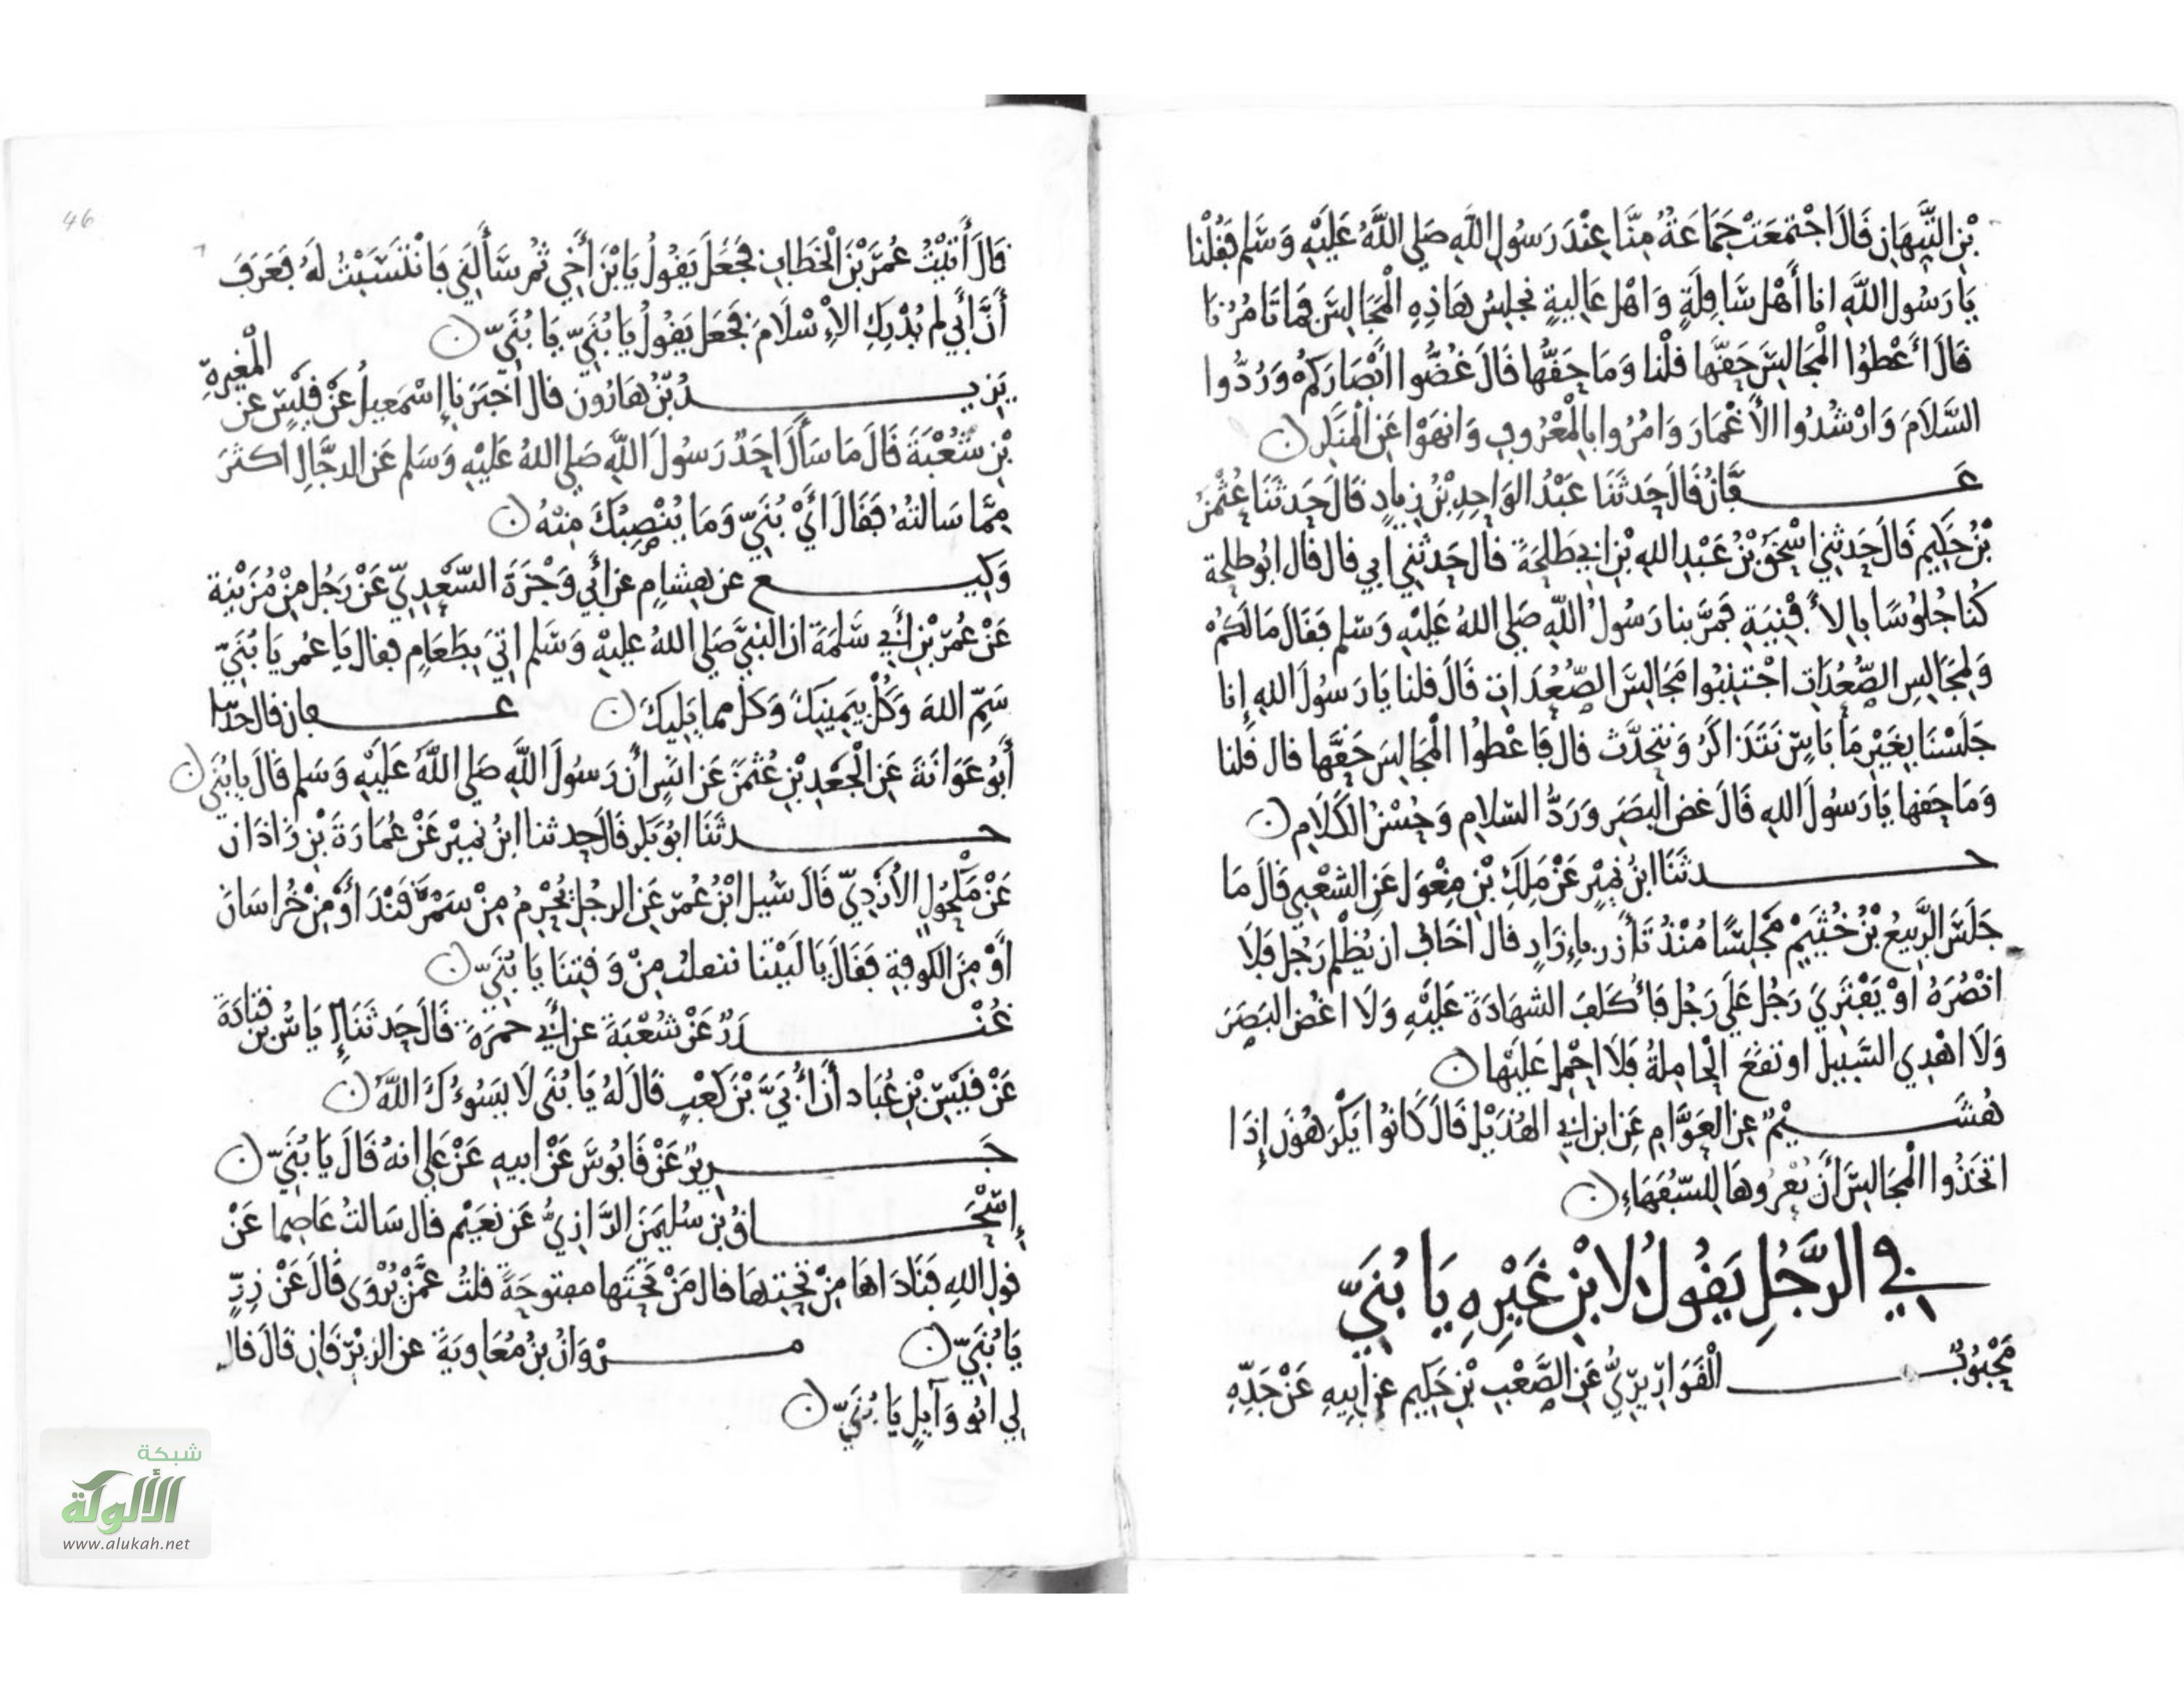 بْنِ التَّيِّهَانِ قَالَ اجْتَمَعَتْ جَمَاعَةٌ مِنَّا عِنْدَ رَسُولِ اللَّهِ صَلى اللَّهُ عَلَيْهِ وَسَلم فَقُلْنَا
يَا رَسُولَ اللَّهِ انا أَهْل سَافِلَةٍ وَاهْل عَالِيةٍ نجلِسُ هَاذِهِ الْمَجَالِسَ فمَا تَامُرُنَا
قَالَ اعْطُوا الْمَجَالِسَ حَقَّهَا قلْنا وَمَا حَقُّها قَالَ غُضُّوا ابْصَارَكُمْ وَرُدُّوا
السَّلَامَ وَارْشُدُوا الأَعْمَارَ وَامُرُوا بالْمَعْرُوفِ وَانهَوْا عَنِ الْمنكَرِ ن
عَفَّانُ قَالَ حَدثَنَا عَبْدُ الوَاحِدِ بْنُ زِيادٍ قَالَ حَدثَنَا عُثْمَنُ
بْنُ حَكِيمٍ قَالَ حَدثنِي اسْحَقُ بْنُ عَبْدِ اللهِ بْنِ ابِي طَلحَةَ قال حَدثني ابي قال قال ابُو طلحة
كُنا جُلوُسًا بِالأَفْنِيَةِ فَمَرَّ بنا رَسُولُ اللّهِ صَلى اللهُ عَليْهِ وَسَلم فَقَالَ مَا لَكُمْ
وَلِمَجَالِسِ الصُّعُدَاتِ اجْتَنِبُوا مَجَالِسَ الصُّعُدَاتِ قَالَ قلنا يَا رَسُولَ اللهِ إنا
جَلَسْنَا بِغَيْرِ مَا بَاسٍ نَتَذَاكَرُ وَنتحدَّث قال فَاعْطوُا الْمَجَالِسَ حَقَّها قال قُلنا
وَمَا حَقها يَا رَسُولَ اللهِ قَالَ غض البَصَرِ وَرَدُّ السَّلامِ وَحُسْنُ الكَلَامِ ن
حدثَنَا ابنُ نمَيْرٍ عَنْ مَلِكِ بْنِ مِغْوَلٍ عَنِ الشعْبِي قَالَ مَا
جَلَسَ الرَّبِيعُ بْنُ خُثَيْمٍ مَجْلِسًا مُنْذُ تَأَزر بإِزَارٍ قال اخَاف ان يُظْلمَ رَجُل فلَا
انْصُرَهُ اوْ يَفْترِيَ رَجُل عَلَى رَجُل فَأكَلفَ الشهَادَةَ عَليْهِ وَلَا اغُض البَصَرَ
وَلَا اهْدِي السَّبِيل او تقعَ الْحَامِلةُ فلَا احْمِل عَلَيْها ن
هُشَيْمٌ عنِ العَوَّامِ عَنِ ابنِ ابِي الهُذَيْلِ قَالَ كَانوُا يَكْرَهُونَ إِذَا
اتخَذُوا الْمَجَالِسَ أَنْ يُعْرُوهَا لِلسّفَهَاءِ ن
في الرَّجُلِ يَقُولُ لِابْنِ غَيْرِهِ يَا بُنَيَّ
مَحْبُوبٌ الْقَوَارِيرِيُّ عَنِ الصَّعْبِ بْنِ حَكِيم عن ابِيهِ عَنْ جَدِّهِ
46
قَالَ أَتَيْتُ عُمَرَ بْنَ الْخَطَّابِ فجَعَلَ يَقُولُ يَا بْنَ أَخِي ثُم سَأَلَنِي فَانْتَسَبْتُ لَهُ فَعَرَفَ
أَنَّ أَبِي لم يُدْرِكِ الإِسْلَامَ فجَعَل يَقُولُ يَا بُنَيِّ يَا بُنَيِّ ن
يَزيدُ بْنُ هَارُونَ قال اخبَرَنا إسْمَعِيلُ عَنْ قَيْسٍ عن الْمغِيرةِ
بْنِ شُعْبَةَ قَالَ مَا سَأَلَ احَدٌ رَسُولَ اللّهِ صَلى اللهُ عَليْهِ وَسَلم عَن الدجَّالِ اكثرَ
مِمَّا سَالتهُ فَقَالَ أَيْ بُنَيِّ وَمَا يُنْصِبُكَ مِنْهُ ن
وَكِيع عن هِشامٍ عن أَبِي وَجْزَةَ السَّعْدِيِّ عَنْ رَجُل مِنْ مُزَيْنة
عَنْ عُمَرَ بْنِ أَبِي سَلَمَةَ ان النبيَّ صَلى اللهُ عليْهِ وَسَلم اتِيَ بِطَعَامٍ فقال يَا عُمر يَا بُنَيِّ
سَمِّ اللهَ وَكُلْ بِيَمِينِكَ وَكلْ مما يَلِيكَ ن عفان قال حدثنا
أَبُو عَوَانَةَ عَنِ الْجَعْدِ بْنِ عُثْمنَ عَن انسٍ أن رَسُولَ اللّهِ صَلى اللّهُ عَلَيْهِ وَسَلم قَالَ يا بُنَي ن
حدثَنَا ابُو بَكر قَالَ حدثنا ابنُ نميْرٍ عَنْ عُمَارَةَ بْنِ زَاذَان
عَنْ مَكْحُولٍ الأَزدِيِّ قَالَ سُيِل ابْنُ عُمَرَ عَنِ الرجُلِ يُحْرِمُ مِنْ سَمَرْقَنْدَ أَوْ مِنْ خُرَاسَانَ
أَوْ مِنَ الكوفةِ فَقَالَ يَا لَيْتَنا ننفلت مِنْ وَقتِنَا يَا بُنَيِّ ن
غُنْدَرٌ عَنْ شُعْبَةَ عن أَبِي حمزَةَ قَالَ حَدثَنَا إِيَاسُ بْن قتادَة
عَنْ قَيْسِ بْنِ عُبَاد أَنَّ أُبَيَّ بْنَ كَعْبٍ قَالَ لَهُ يَا بُنَي لَا يَسُوءُكَ اللّهُ ن
جَرِيرٌ عَنْ قَابُوسَ عَنْ ابِيهِ عَنْ عَلي انهُ قَالَ يَا بُنَيِّ ن
إِسْحَاقُ بن سُليمَنَ الرَّازِيُّ عَن نعَيْم قال سَالتُ عَاصِما عَنْ
قول اللهِ فَنَادَاهَا مِنْ تحْتِهَا قال مَنْ تحْتَها مفتوحَةً قلتُ عَمَّنْ يُرْوَى قَالَ عَنْ زِرٍّ
يَا بُنَيِّ ن مرْوَانُ بنُ مُعَاوِيَةَ عن الزبْرقَانِ قَالَ قال
لِي ابُو وَآيِلٍ يَا بُنَيِّ ن
شبكة
الألوكة
www.alukah.net